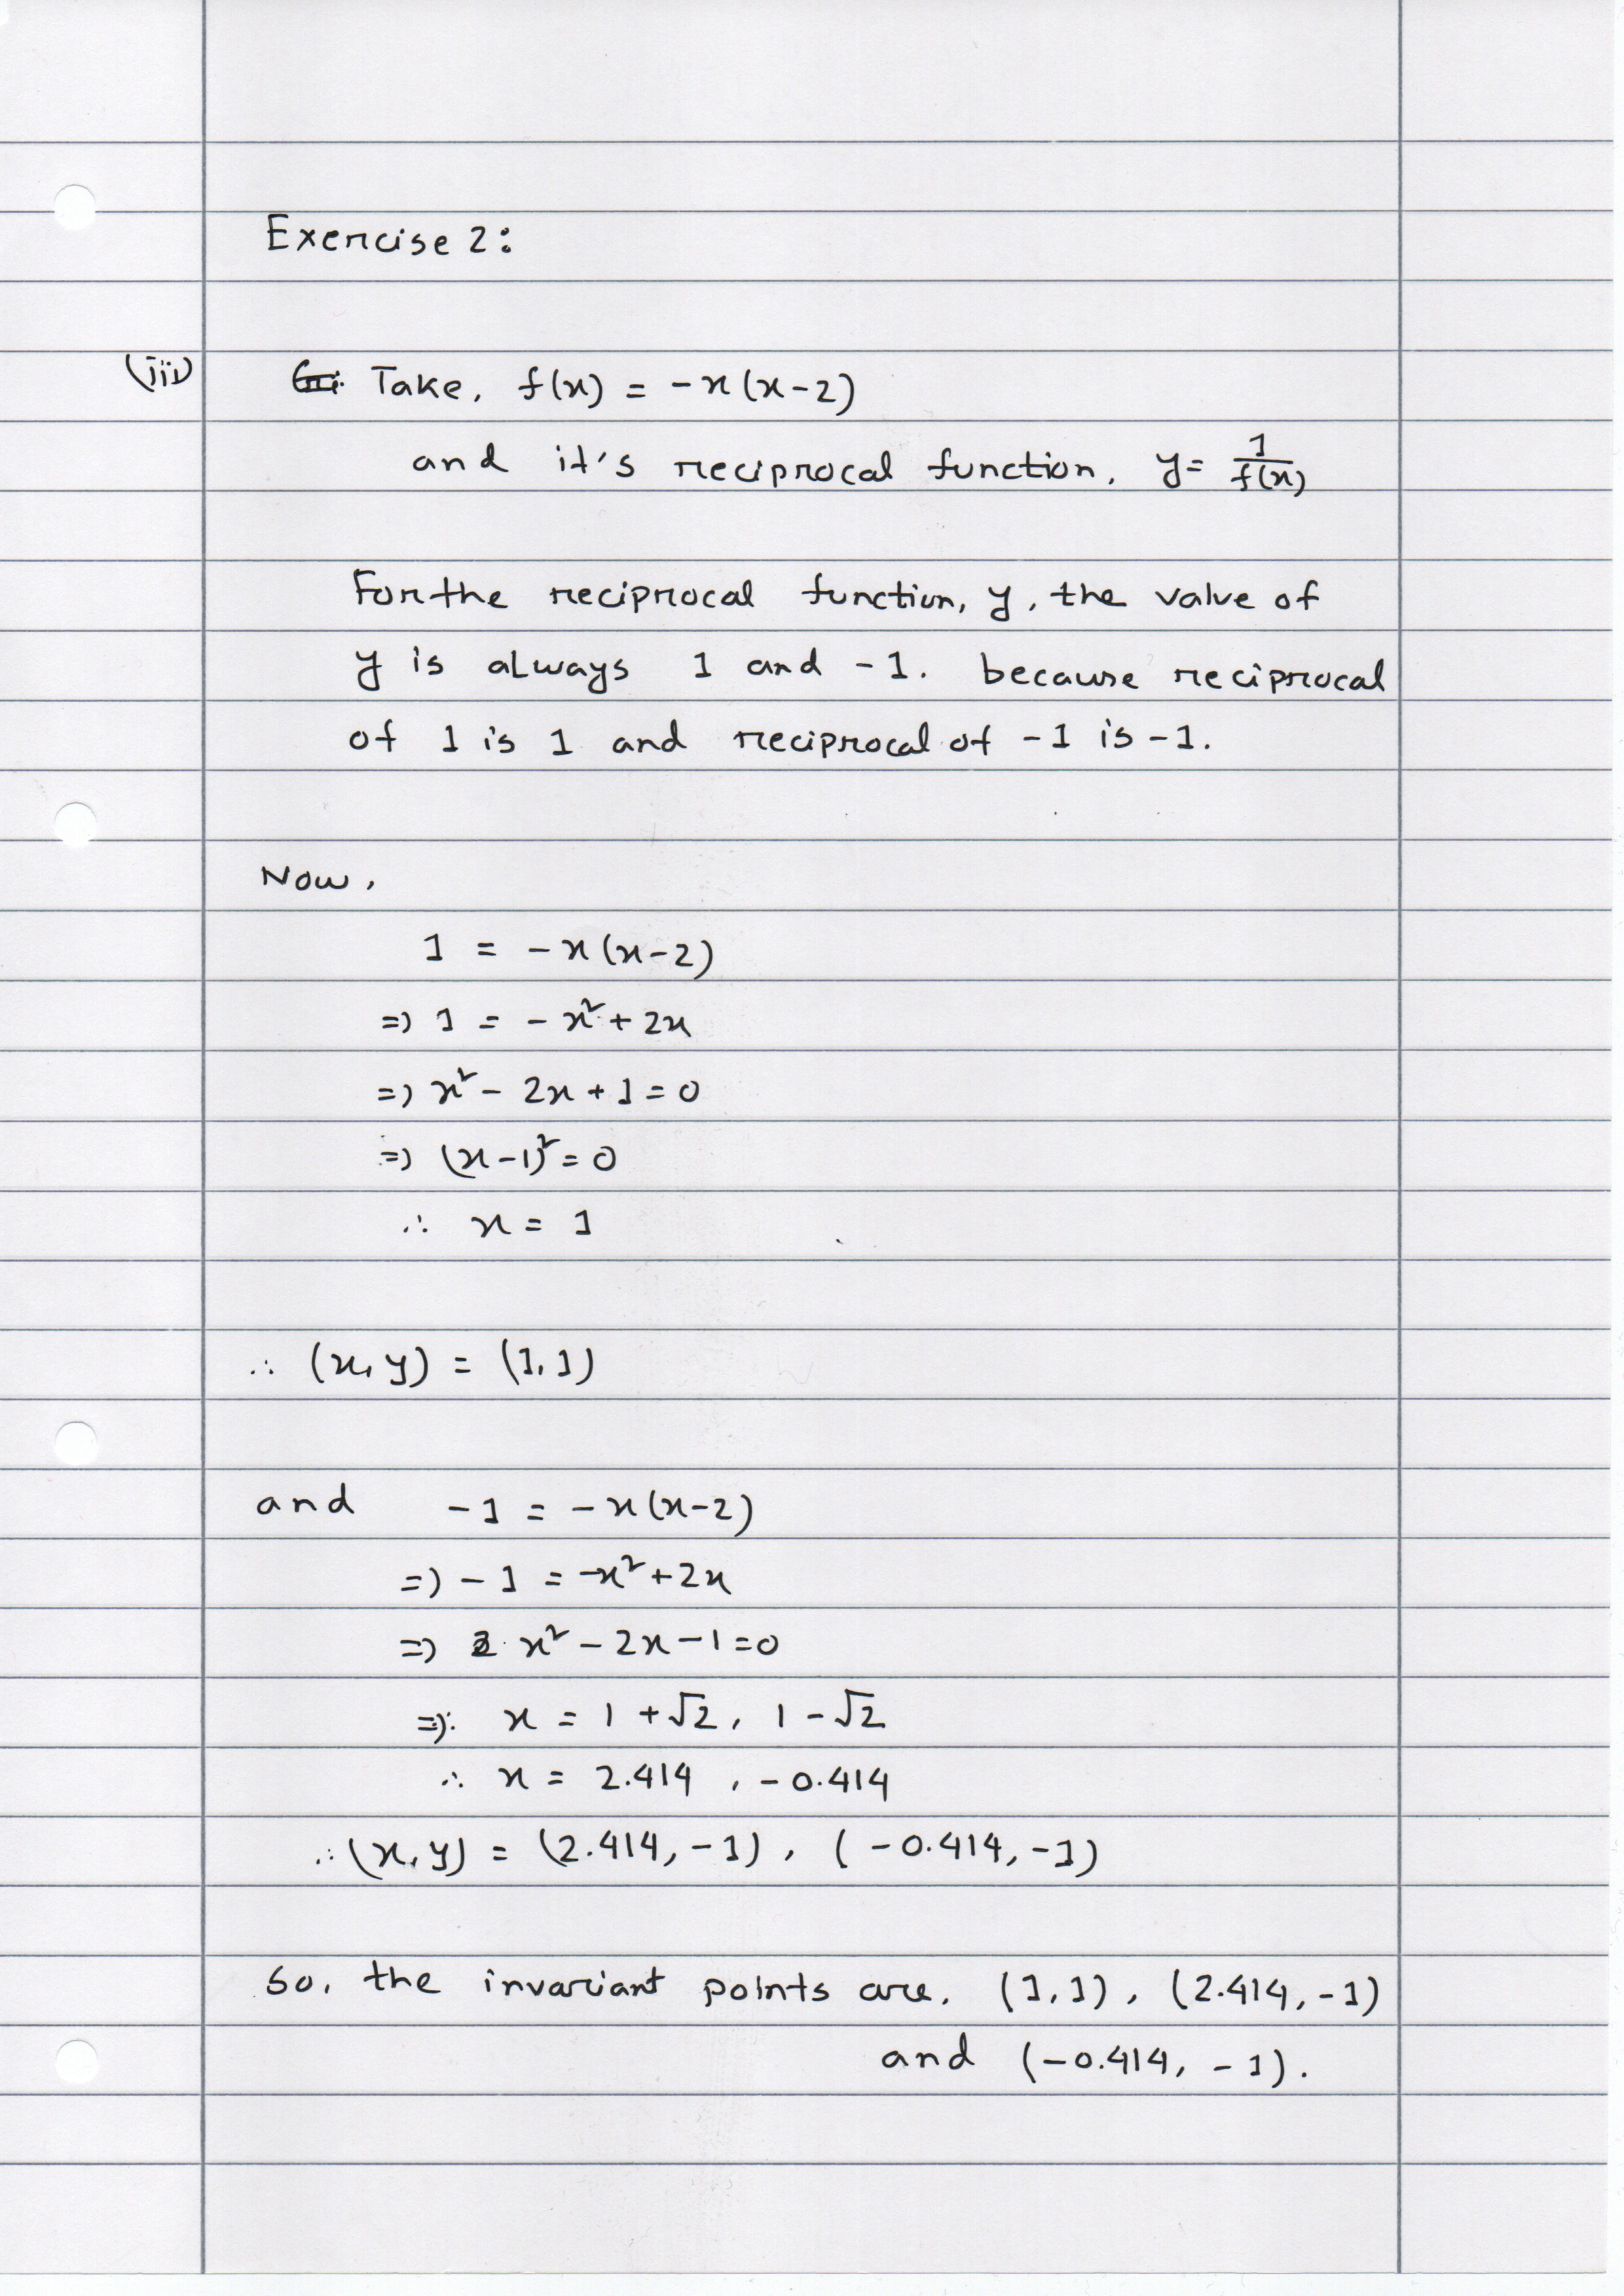 Exercise 2:
(iii) Take, f(x) = -x(x-2)
and it's reciprocal function, y = 1/f(x)
For the reciprocal function, y, the value of
y is always 1 and -1. because reciprocal
of 1 is 1 and reciprocal of -1 is -1.
Now,
1 = -x(x-2)
=> 1 = -x²+2x
=> x²- 2x+1=0
=> (x-1)²=0
∴ x = 1
∴ (x,y) = (1,1)
and -1 = -x(x-2)
=> -1 = -x²+2x
=> x²-2x-1=0
=> x = 1+√2, 1-√2
∴ x = 2.414, -0.414
∴ (x,y) = (2.414,-1), (-0.414,-1)
So, the invariant points are, (1,1), (2.414,-1)
and (-0.414, -1).